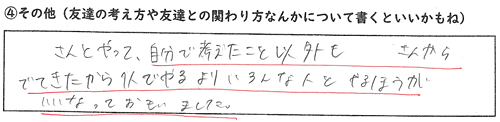 ④その他（友達の考え方や友達との関わり方なんかについて書くといいかもね）
さんとやって、自分で考えたこと以外も さんから
でてきたから1人でやるよりいろんな人とやるほうが
いいなっておもいました。